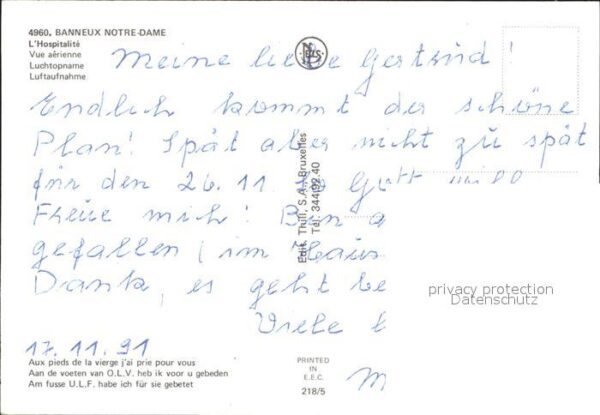 4960. BANNEUX NOTRE-DAME
L'Hospitalité
Vue aérienne
Luchtopname
Luftaufnahme
Meine liebe Gertrud!
Endlich kommt der schöne
Plan! Spät aber nicht zu spät
für den 26.11. So Gott will
Freue mich! Bin a
gefallen (im Haus
Dank, es geht be
Viele
17.11.91
M
Aux pieds de la vierge j'ai prie pour vous
Aan de voeten van O.L.V. heb ik voor u gebeden
Am fusse U.L.F. habe ich für sie gebetet
Edit. Thill, S.A., Bruxelles
Tél. 344.92.40
PRINTED
IN
E.E.C.
218/5
privacy protection
Datenschutz